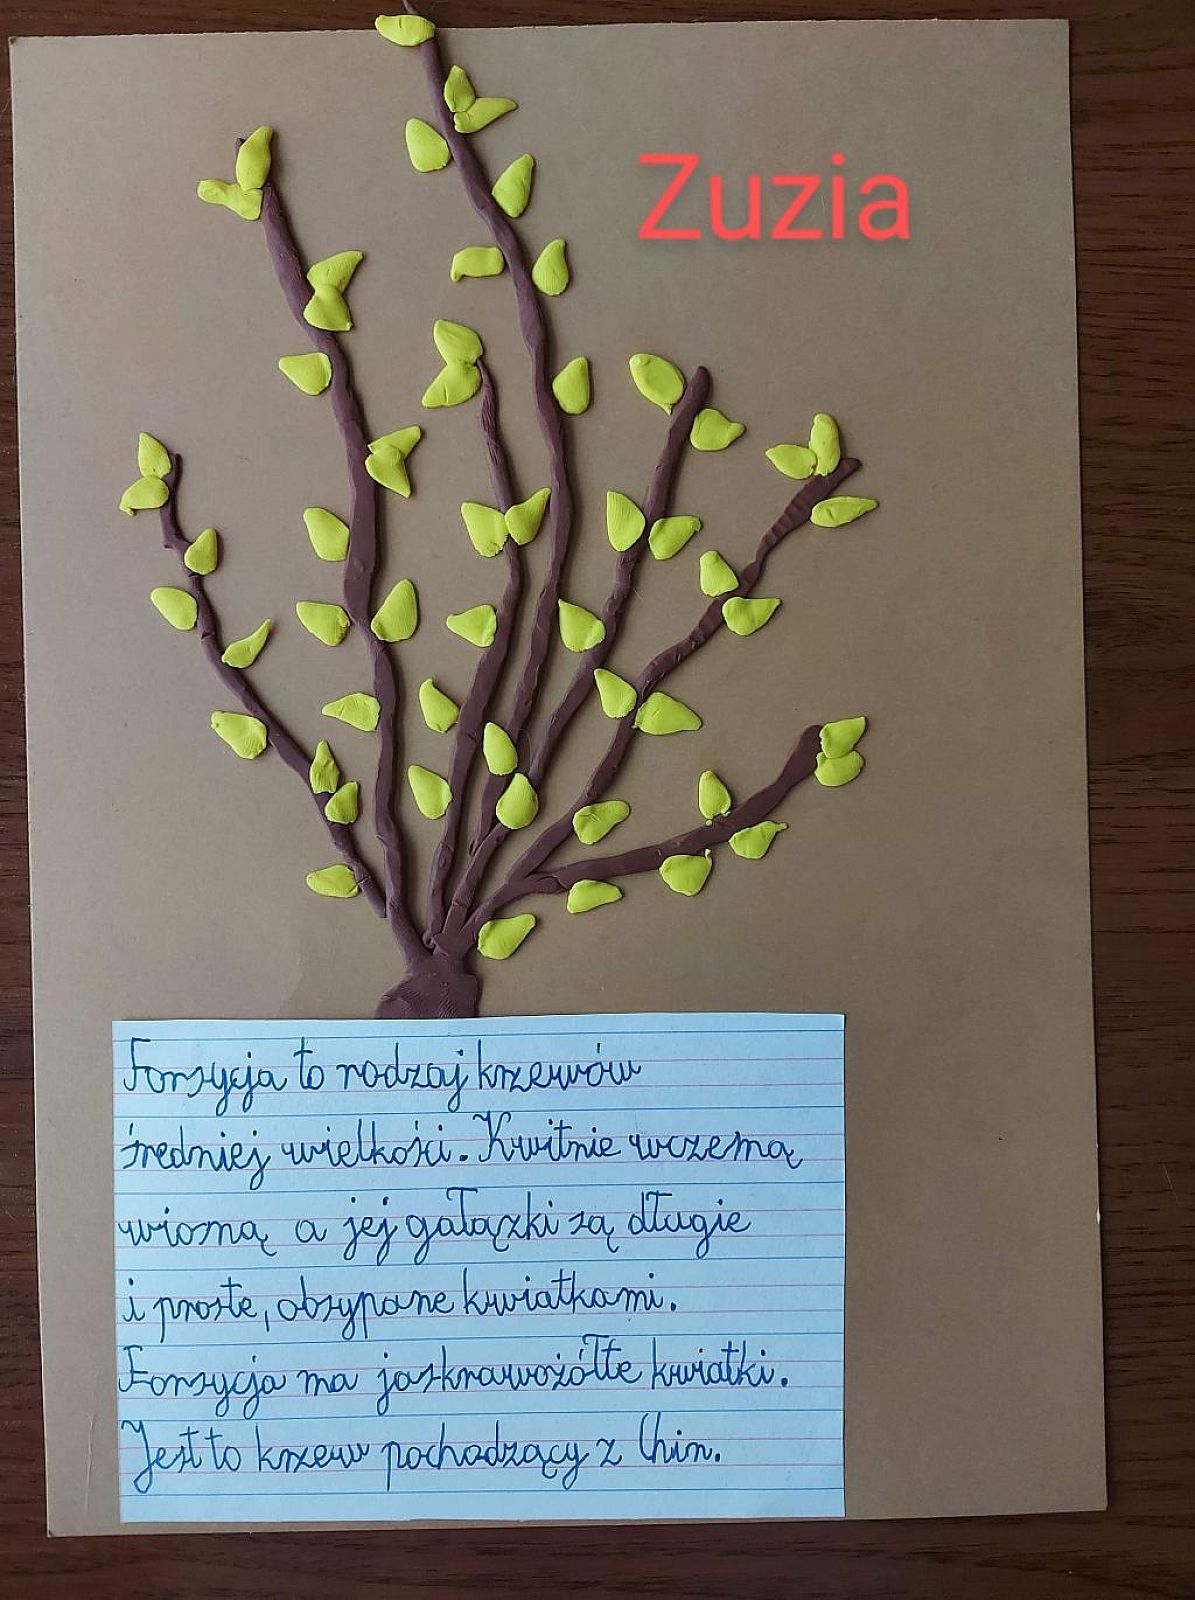 Zuzia
Forsycja to rodzaj krzewów
średniej wielkości. Kwitnie wczesną
wiosną a jej gałązki są długie
i proste, obsypane kwiatkami.
Forsycja ma jaskrawożółte kwiatki.
Jest to krzew pochodzący z Chin.